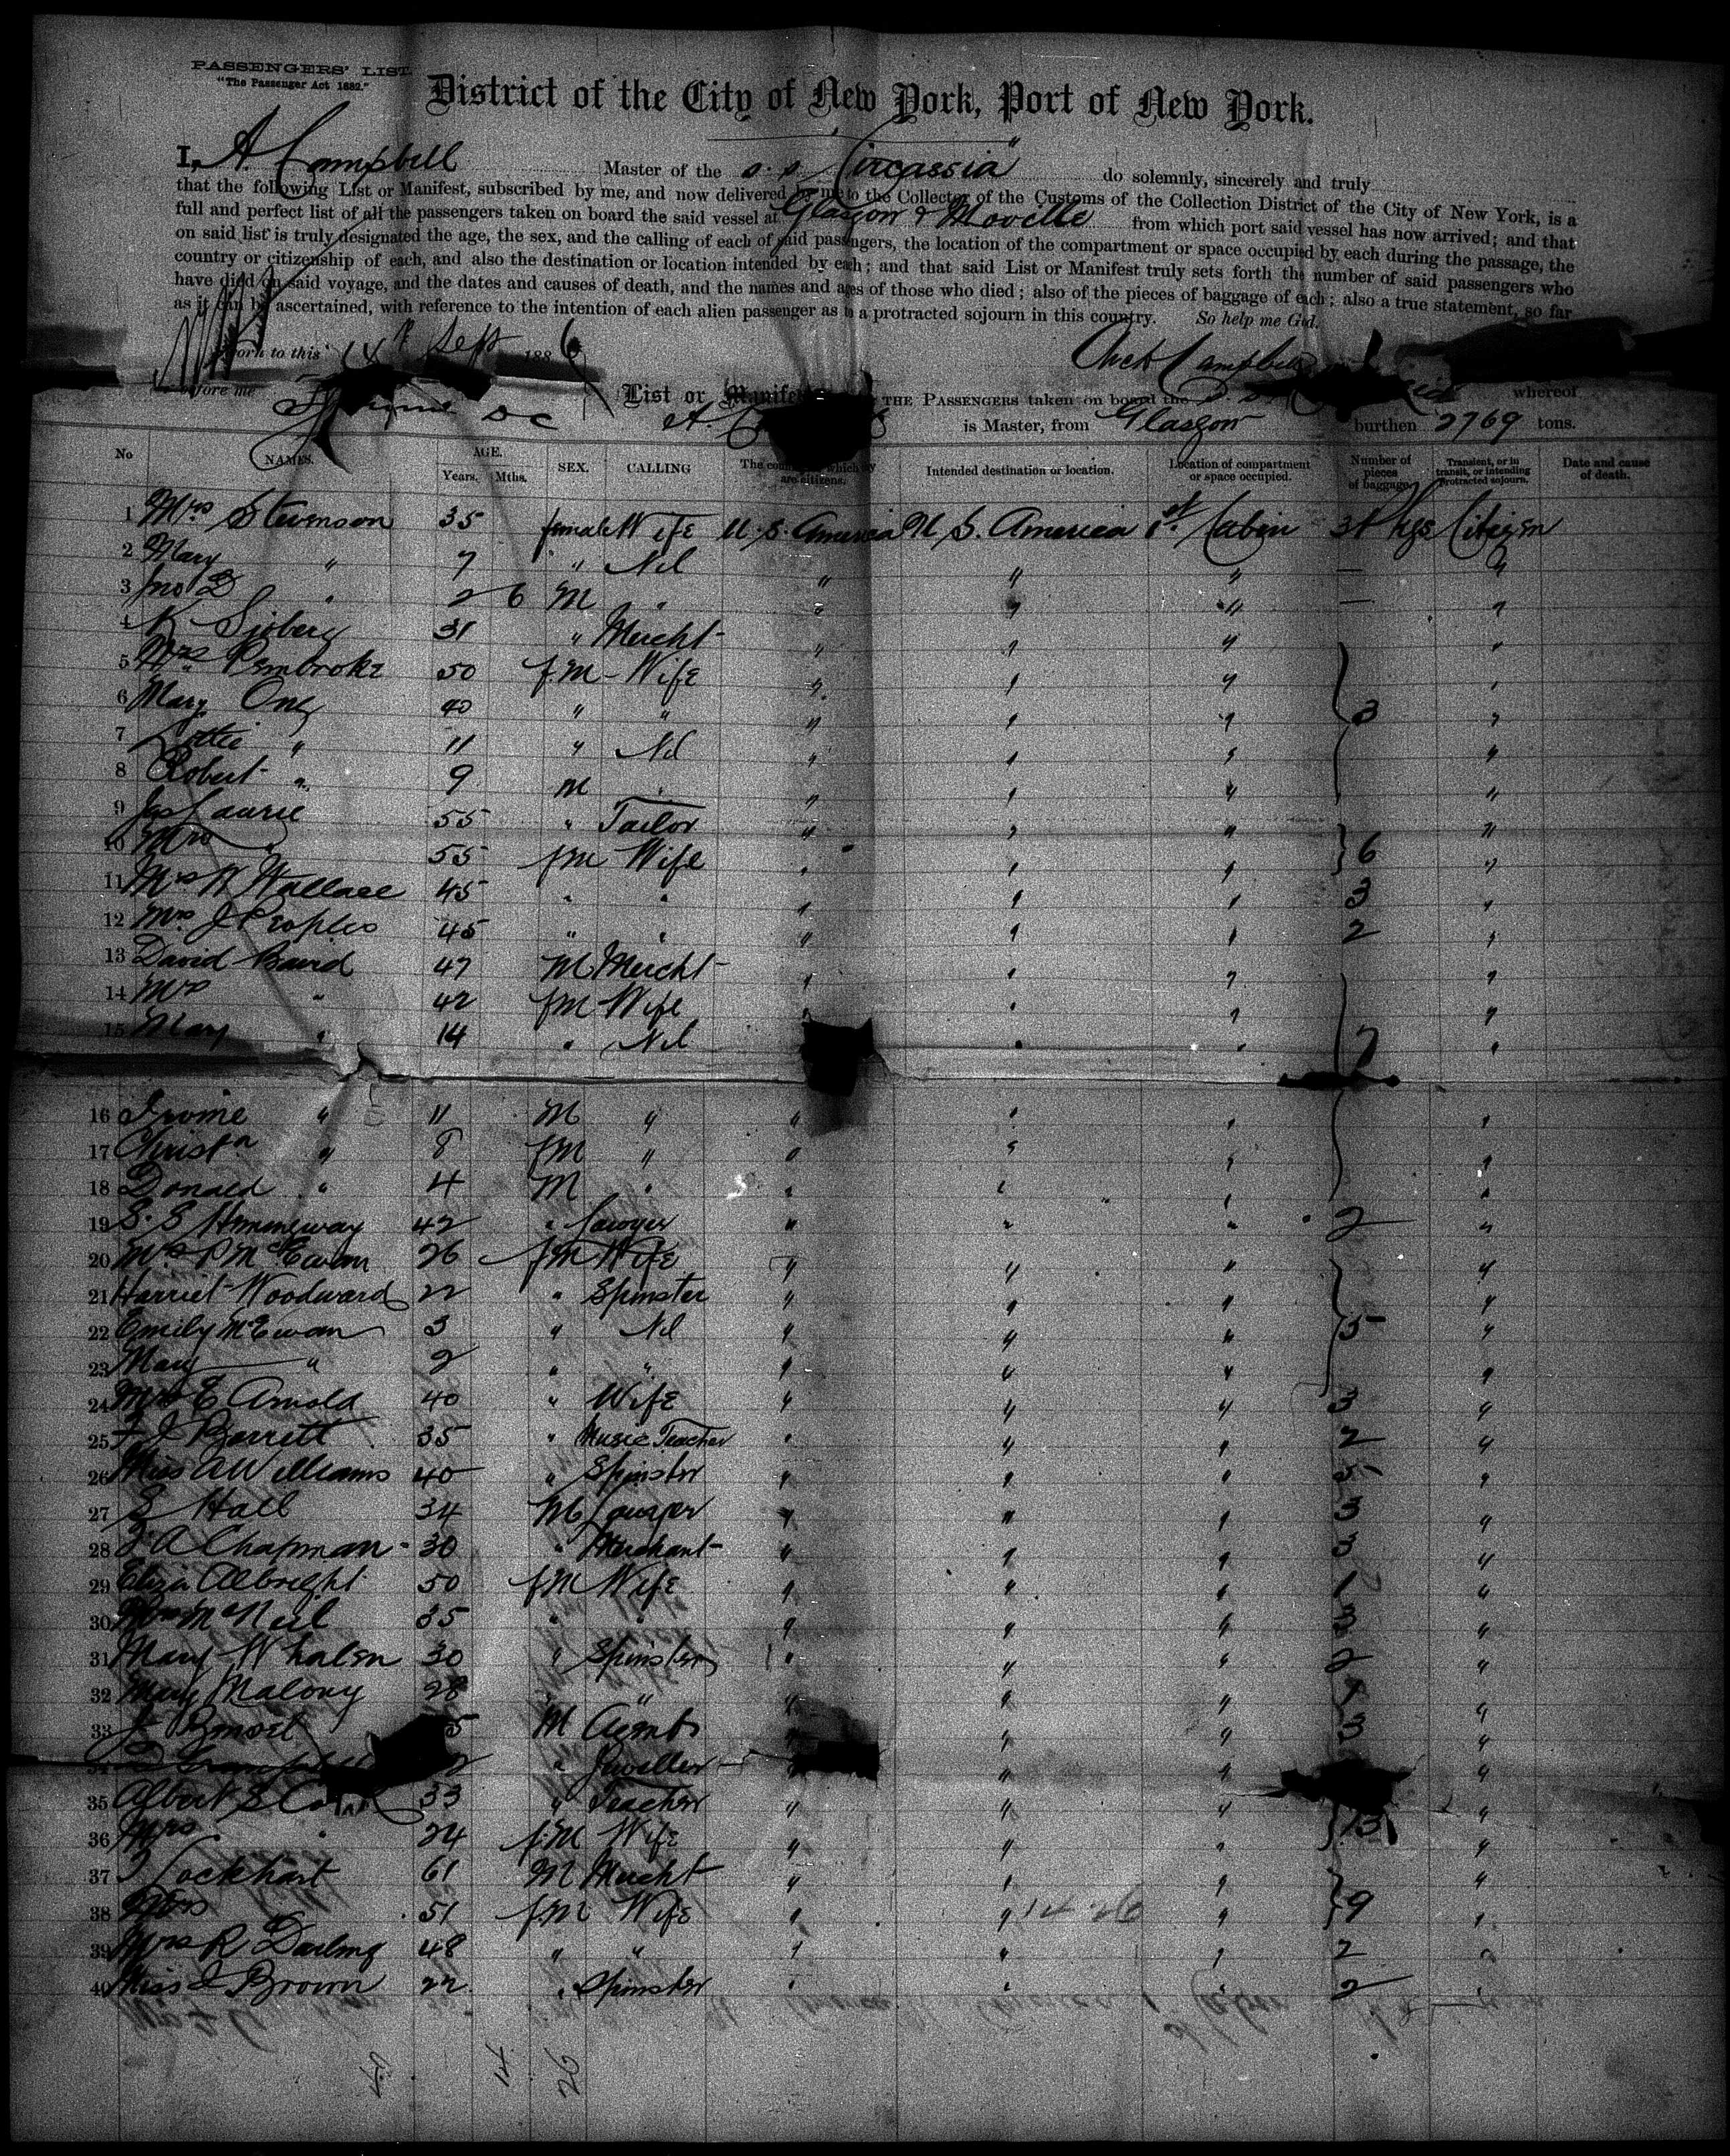 PASSENGERS' LIST.
"The Passenger Act 1882."
District of the City of New York, Port of New York.
I, A Campbell Master of the s. s. "Circassia" do solemnly, sincerely and truly
that the following List or Manifest, subscribed by me, and now delivered by me to the Collector of the Customs of the Collection District of the City of New York, is a
full and perfect list of all the passengers taken on board the said vessel at Glasgow & Moville from which port said vessel has now arrived; and that
on said list is truly designated the age, the sex, and the calling of each of said passengers, the location of the compartment or space occupied by each during the passage, the
country or citizenship of each, and also the destination or location intended by each; and that said List or Manifest truly sets forth the number of said passengers who
have died on said voyage, and the dates and causes of death, and the names and ages of those who died; also of the pieces of baggage of each; also a true statement, so far
as it can be ascertained, with reference to the intention of each alien passenger as to a protracted sojourn in this country. So help me God.
Sworn to this 14th Sept 1886
Campbell
before me
List or Manifest THE PASSENGERS taken on board the S. S. whereof
A. is Master, from Glasgow burthen 2769 tons.
No NAMES. AGE. Years. Mths. SEX. CALLING The country of which they are citizens. Intended destination or location. Location of compartment or space occupied. Number of pieces of baggage. Transient, or in transit, or intending protracted sojourn. Date and cause of death.
1 Mrs Stevenson 35 female Wife U. S. America U S. America 1st Cabin 3 Pkgs Citizen
2 Mary " 7 " Nil " " " — "
3 Jno D " 2 6 M " " " " — "
4 K Sjoberg 31 " Mercht " " " "
5 Mrs Pembroke 50 fm Wife " " " "
6 Mary Ong 40 " " " " " 3 "
7 Lottie " 11 " Nil " " " "
8 Robert " 9 M " " " " "
9 Jas Laurie 55 " Tailor " " " "
10 Mrs " 55 fm Wife " " " 6 "
11 Mrs W Wallace 45 " " " " " 3 "
12 Mrs J Peoples 45 " " " " " 2 "
13 David Baird 47 M Mercht " " " "
14 Mrs " 42 fm Wife " " " "
15 Mary " 14 " Nil " " 7 "
16 Irvine " 11 M " " " " "
17 Christn " 8 fm " " " " "
18 Donald " 4 M " " " " "
19 S. S Hemingway 42 " Lawyer " " " 2 "
20 Mrs P McEwan 26 fm Wife " " " "
21 Harriet Woodward 22 " Spinster " " " "
22 Emily McEwan 3 " Nil " " " 5 "
23 Mary " 2 " " " " " "
24 Mrs E Arnold 40 " Wife " " " 3 "
25 F J Barrett 35 " Music Teacher " " " 2 "
26 Miss A Williams 40 " Spinster " " " 5 "
27 S Hall 34 M Lawyer " " " 3 "
28 J A Chapman 30 " Merchant " " " 3 "
29 Eliza Albright 50 fm Wife " " " 1 "
30 Mrs McNeil 35 " " " " " 3 "
31 Mary Whalen 30 " Spinster " " " 2 "
32 Mary Malony 28 " " " " " 1 "
33 M Agent " " " 3 "
34 " Jeweller " " " "
35 Albert S 33 " Teacher " " " "
36 Mrs " 24 fm Wife " " " 13 "
37 Lockhart 61 M Mercht " " " "
38 Mrs 51 fm Wife " " " 9 "
39 Mrs R Darling 48 " " " " " 2 "
40 Miss J Brown 22 " Spinster " " " 2
14 26
14 26